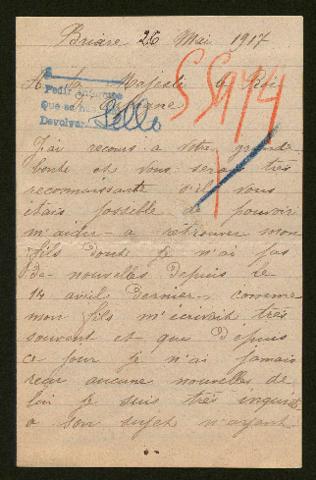 Briare 26 Mai 1917
A Sa Majesté le Roi
d'Espagne
S
Pedir informes
Que se ha
Devolver
Sello
55974
J'ai recours a votre grande
bonté et vous serai très
reconnaissante s'il vous
était possible de pouvoir
m'aider a retrouver mon
fils dont je n'ai pas
de nouvelles depuis le
14 avril dernier, comme
mon fils m'ecrivait très
souvent et que depuis
ce jour je n'ai jamais
reçu aucune nouvelles de
lui je suis très inquiète
a son sujet n'ayant